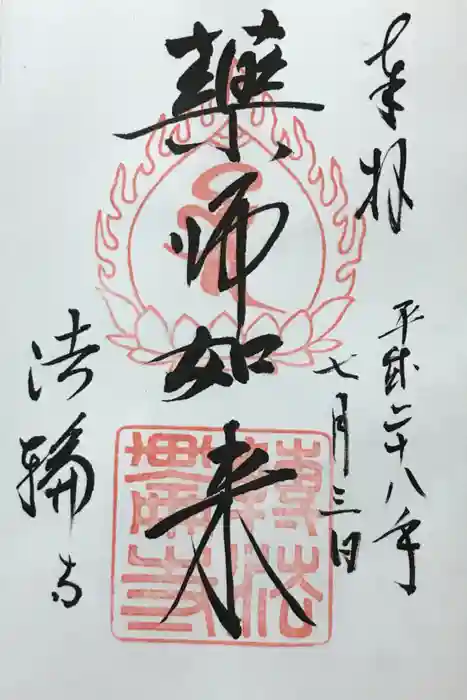 奉拝
平成二十八年
七月三日
藥師如来
法輪寺